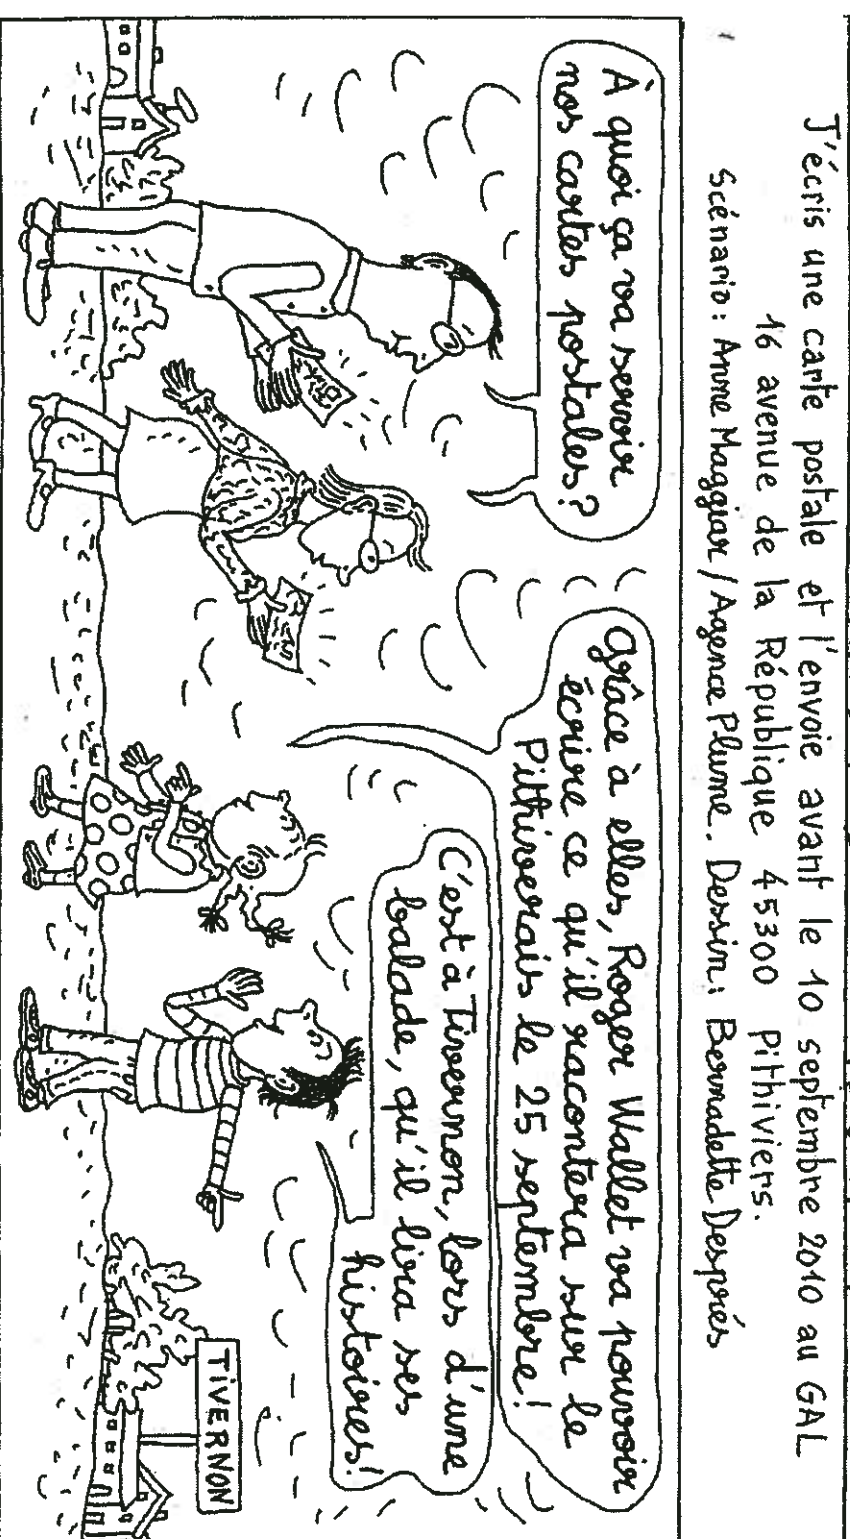 J'écris une carte postale et l'envoie avant le 10 septembre 2010 au GAL
16 avenue de la République 45300 Pithiviers.
Scénario : Anne Maggiar / Agence Plume. Dessin : Bernadette Després
À quoi ça va servir
nos cartes postales ?
Grâce à elles, Roger Wallet va pouvoir
écrire ce qu'il racontera sur le
Pithiverais le 25 septembre !
C'est à Tivernon, lors d'une
balade, qu'il lira ses
histoires !
TIVERNON